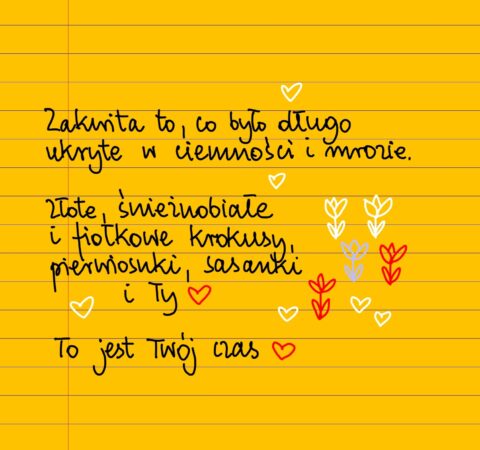 Zakwita to, co było długo
ukryte w ciemności i mrozie.
złote, śnieżnobiałe
i fiołkowe krokusy,
pierwiosnki, sasanki
i Ty
To jest Twój czas